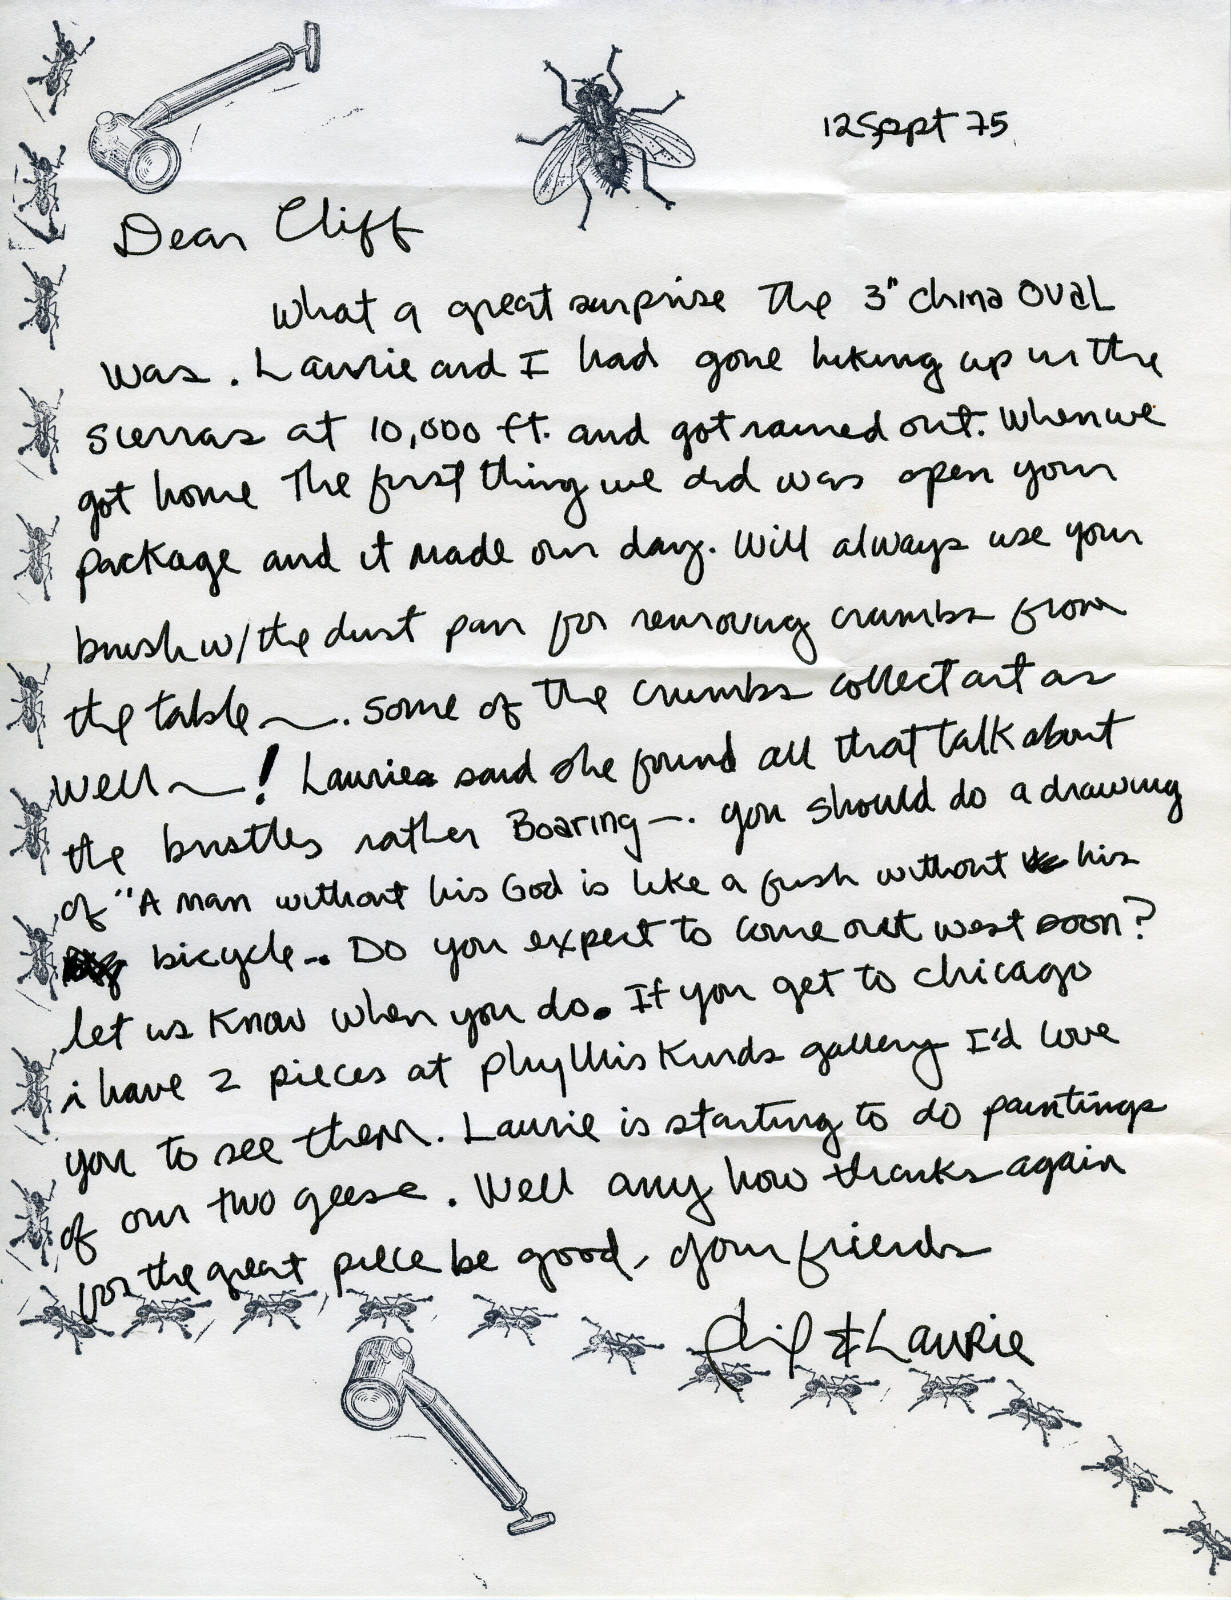 12 Sept 75
Dear Cliff
What a great surprise the 3" china OVAL
was. Laurie and I had gone hiking up in the
Sierras at 10,000 ft. and got rained out. When we
got home the first thing we did was open your
package and it made our day. Will always use your
brush w/the dust pan for removing crumbs from
the table ~. some of the crumbs collect art as
well ~! Laurie said she found all that talk about
the bristles rather Boaring—. you should do a drawing
of "A man without his God is like a fish without his
bicycle... Do you expect to come out west soon?
let us know when you do. If you get to chicago
i have 2 pieces at Phyllis Kinds gallery I'd love
you to see them. Laurie is starting to do paintings
of our two geese. Well any how thanks again
for the great piece be good, your friends
& LAURIE